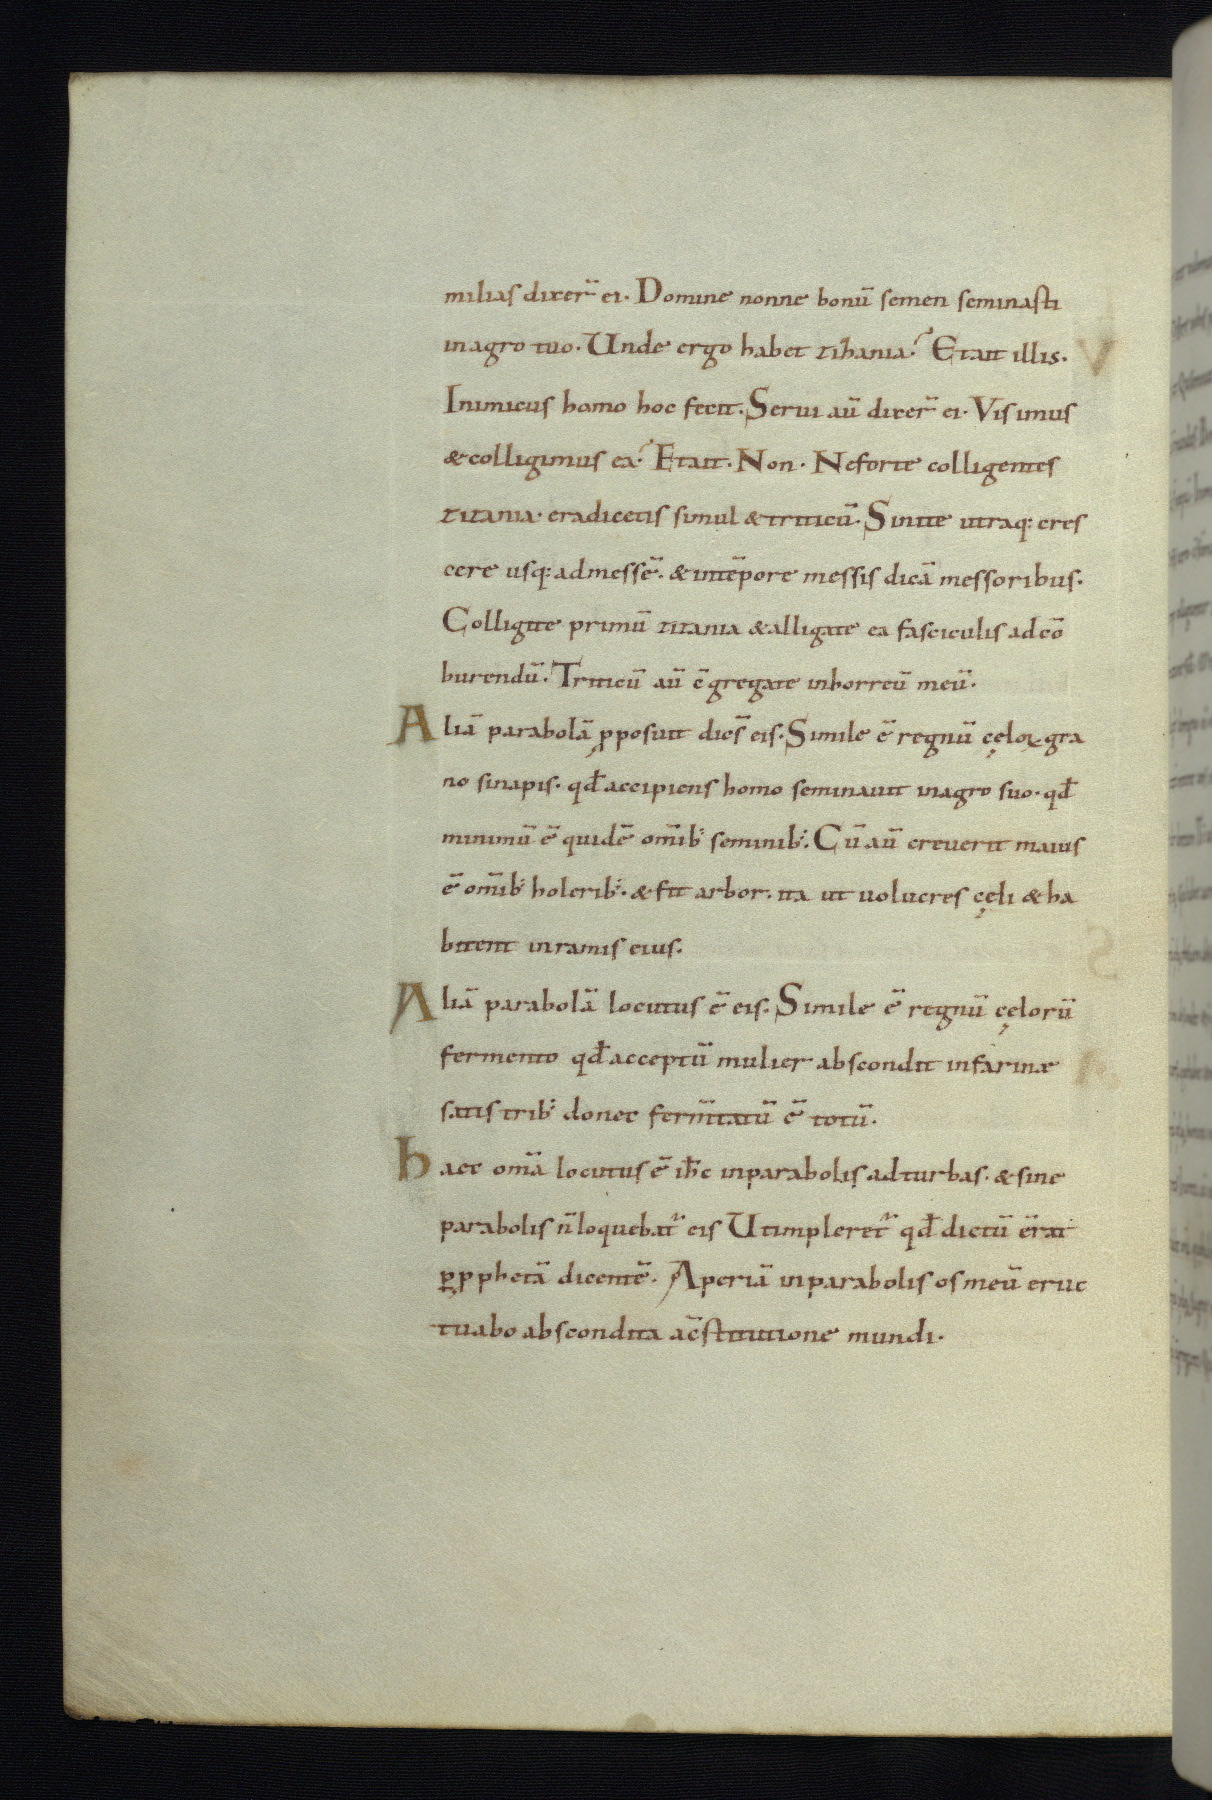 milias dixer̄ ei. Domine nonne bonū semen seminasti
in agro tuo. Unde ergo habet zihania? Et ait illis.
Inimicus homo hoc fecit. Serui aū dixer̄ ei. Vis imus
& colligimus ea? Et ait. Non. Ne forte colligentes
zizania. eradicetis simul & triticū. Sinite utraq; cres
cere usq; ad messē. & in tēpore messis dicā messoribus.
Colligite primū zizania & alligate ea fasciculis ad cō
burendū. Triticū aū c̄gregate in horreū meū.
Aliā parabolā ꝓposuit dicēs eis. Simile ē regnū cęloꝝ gra
no sinapis. qđ accipiens homo seminauit in agro suo. qđ
minimū ē quidē om̄ib; seminib;. Cū aū creuerit maius
ē om̄ib; holerib;. & fit arbor. ita ut uolucres cęli & ha
bitent in ramis eius.
Aliā parabolā locutus ē eis. Simile ē regnū cęlorū
fermento qđ acceptū mulier abscondit in farinæ
satis trib; donec ferm̄tatū ē totū.
haec om̄a locutus ē ih̄c in parabolis ad turbas. & sine
parabolis n̄ loquebat̄ eis Ut impleret̄ qđ dictū erat
ꝑ ꝓphetā dicentē. Aperiā in parabolis os meū eruc
tuabo abscondita a c̄stitutione mundi.